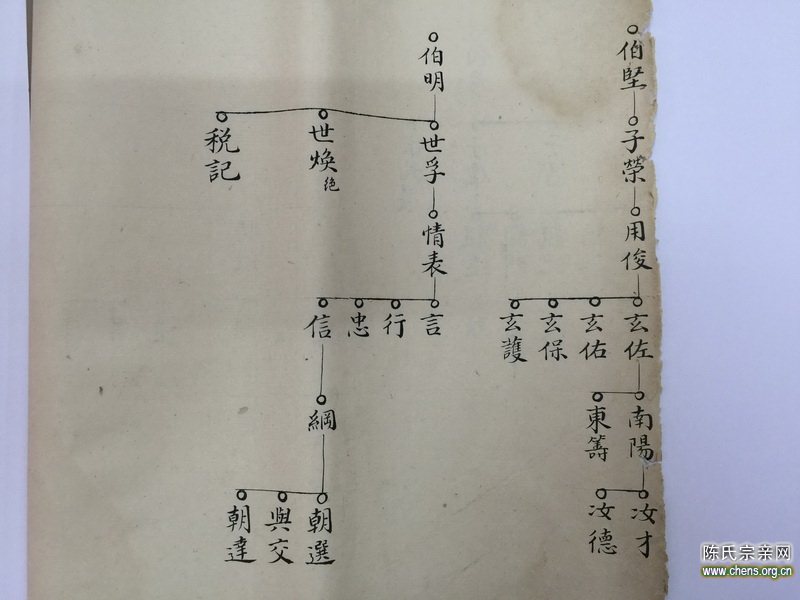 伯堅
子榮
用俊
玄佐
玄佑
玄保
玄護
南陽
東籌
汝才
汝德
伯明
世孚
世煥
绝
税記
情表
言
行
忠
信
綱
朝選
與交
朝達
陈氏宗亲网
www.chens.org.cn